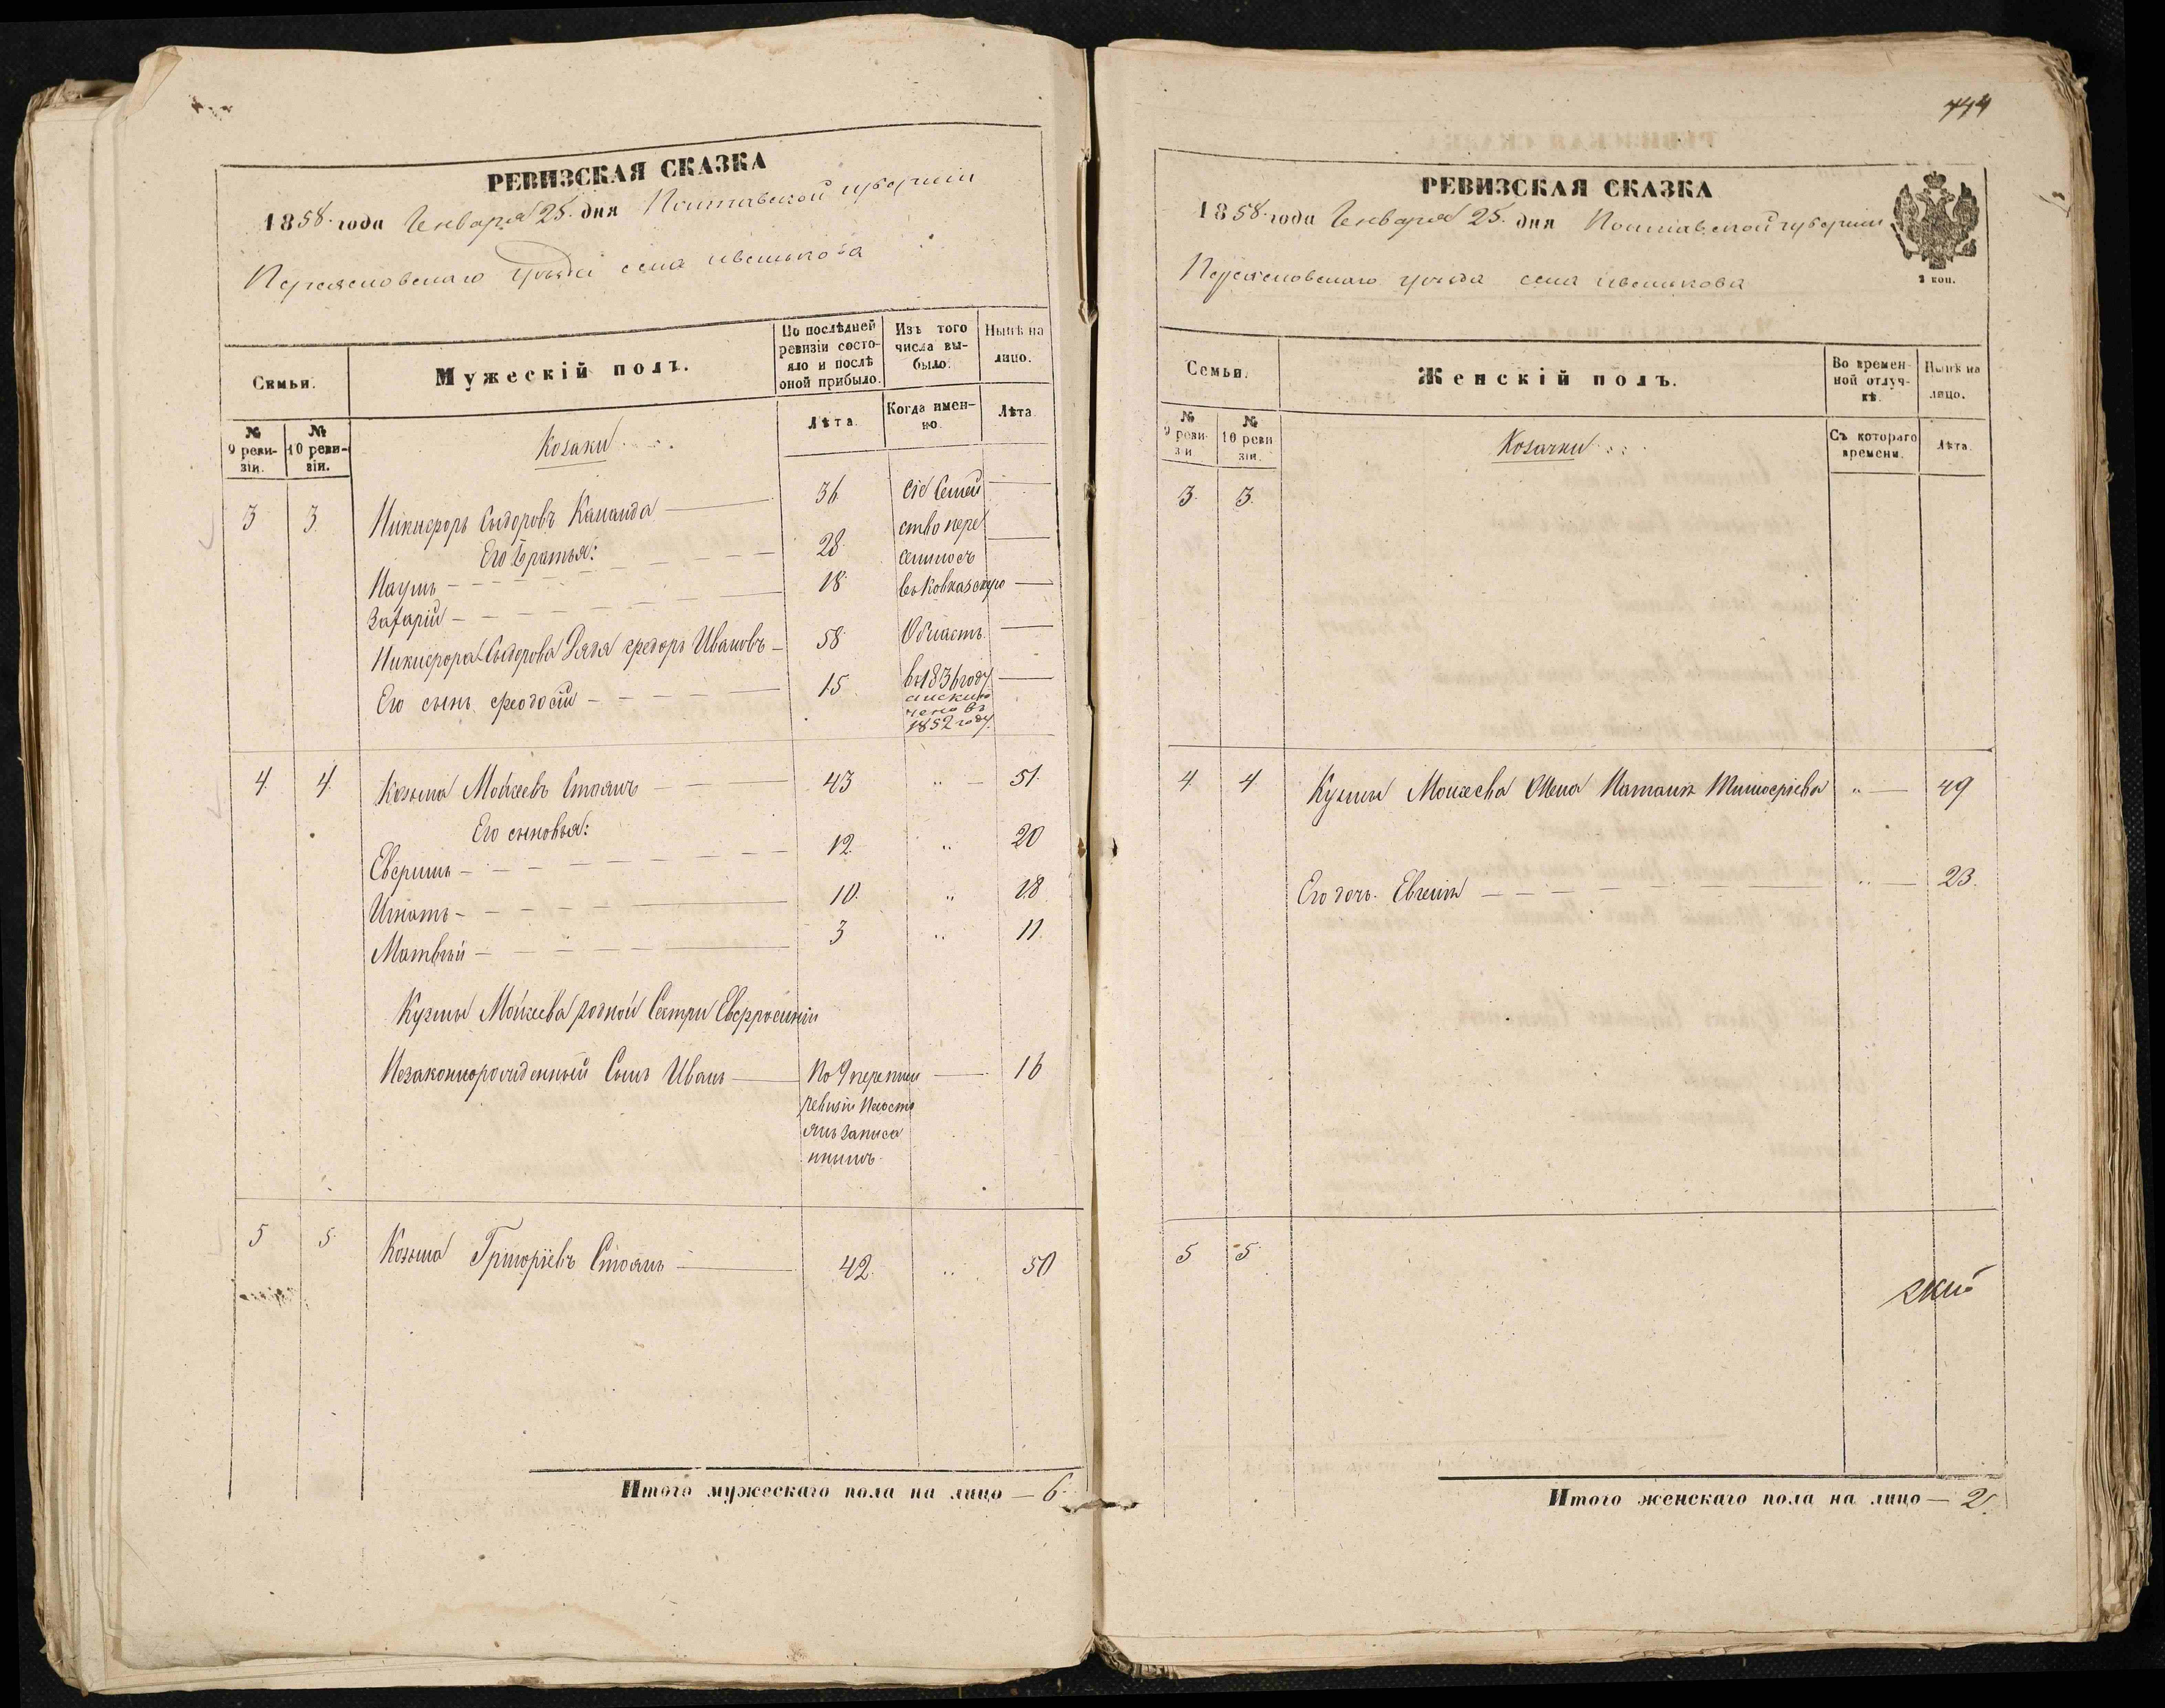 РЕВИЗСКАЯ СКАЗКА
1858 года Генваря 25 дня Полтавской губерніи
Переясловскаго уѣзда села
Семьи.
Мужескій полъ.
По послѣдней ревизіи состояло и послѣ оной прибыло.
Изъ того числа выбыло.
Нынѣ на лицо.
№ 9 ревизіи.
№ 10 ревизіи.
Козаки
Лѣта.
Когда именно.
Лѣта.
3 3 Никифоръ Сидоровъ 36 сіе Семей
Его Братья: ство пере
Наумъ 28 селилось
Захарій 18 въ Ковказскую
Никифора Сидорова Дядя Федоръ Ивановъ 58 Область
Его сынъ Феодосій 15 въ 1836 году
а исклю
чено въ
1852 году
4 4 Козьма Мойсеевъ Стоянъ 43 " 51
Его сыновья:
12 " 20
Игнатъ 10 " 18
Матвѣй 3 " 11
Кузмы Мойсеева родной Сестри Евфросиніи
Незаконнорожденный Сынъ Иванъ По 9 16
ревизіи
записа
ннымъ
5 5 Козьма Григоріевъ Стоянъ 42 " 50
Итого мужескаго пола на лицо — 6
744
РЕВИЗСКАЯ СКАЗКА
1858 года Генваря 25 дня Полтавской губерніи
Переясловскаго уѣзда села
2 коп.
Семьи.
Женскій полъ.
Во временной отлучкѣ.
Нынѣ на лицо.
№ 9 ревизіи
№ 10 ревизіи.
Козачки
Съ котораго времени.
Лѣта.
3 3
4 4 Кузмы Моисеева Жена Наталія " 49
Его дочь Евгенія " 23
5 5
Итого женскаго пола на лицо — 2